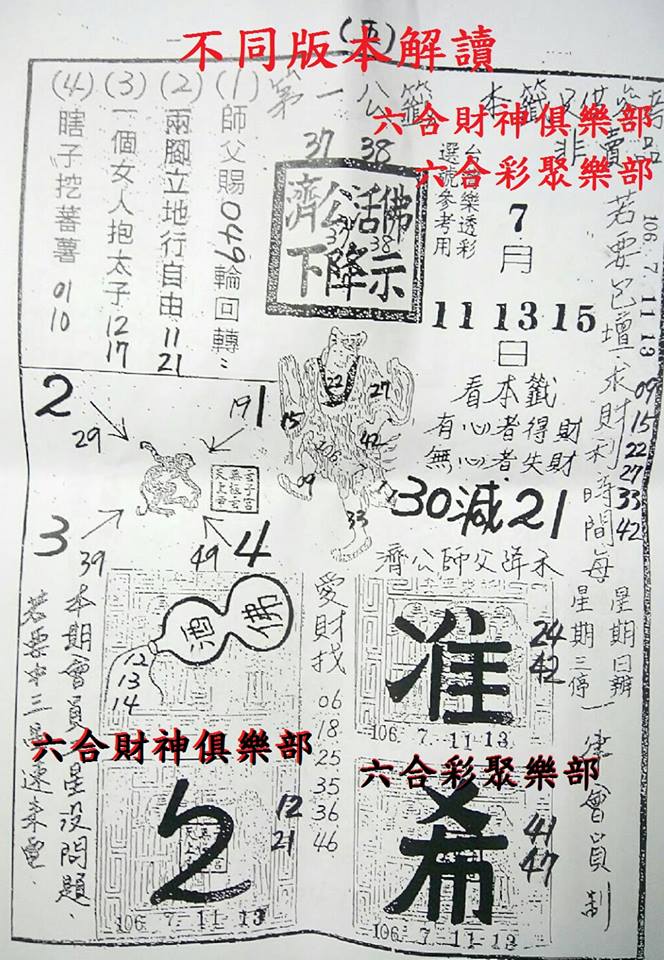 (五)
不同版本解讀
第一公籤
本籤只供
非賣品
六合財神俱樂部
六合彩聚樂部
37 38
濟公活佛
37 38
下降示
台灣樂透彩
選號參考用
7
月
11 13 15
日
106. 7. 11 13
若要包壇求財利時間每
星期日辦
星期三停
一律會員制
09
15
22
27
33
42
(1) 師父賜049輪回轉
(2) 兩腳立地行自由 11 21
(3) 一個女人抱太子 12 17
(4) 瞎子挖蕃薯 01 10
看本籤
有心者得財
無心者失財
30減21
濟公師父降示
2
29
1
19
3
39
4
49
22
27
15
42
106
09
33
佛
酒
12
13
14
愛財找
06
18
25
35
36
46
准
24
42
106 7 11 13
六合財神俱樂部
六合彩聚樂部
本期會員星沒問題
12
21
106 7 11 13
希
41
47
106 7 11 13